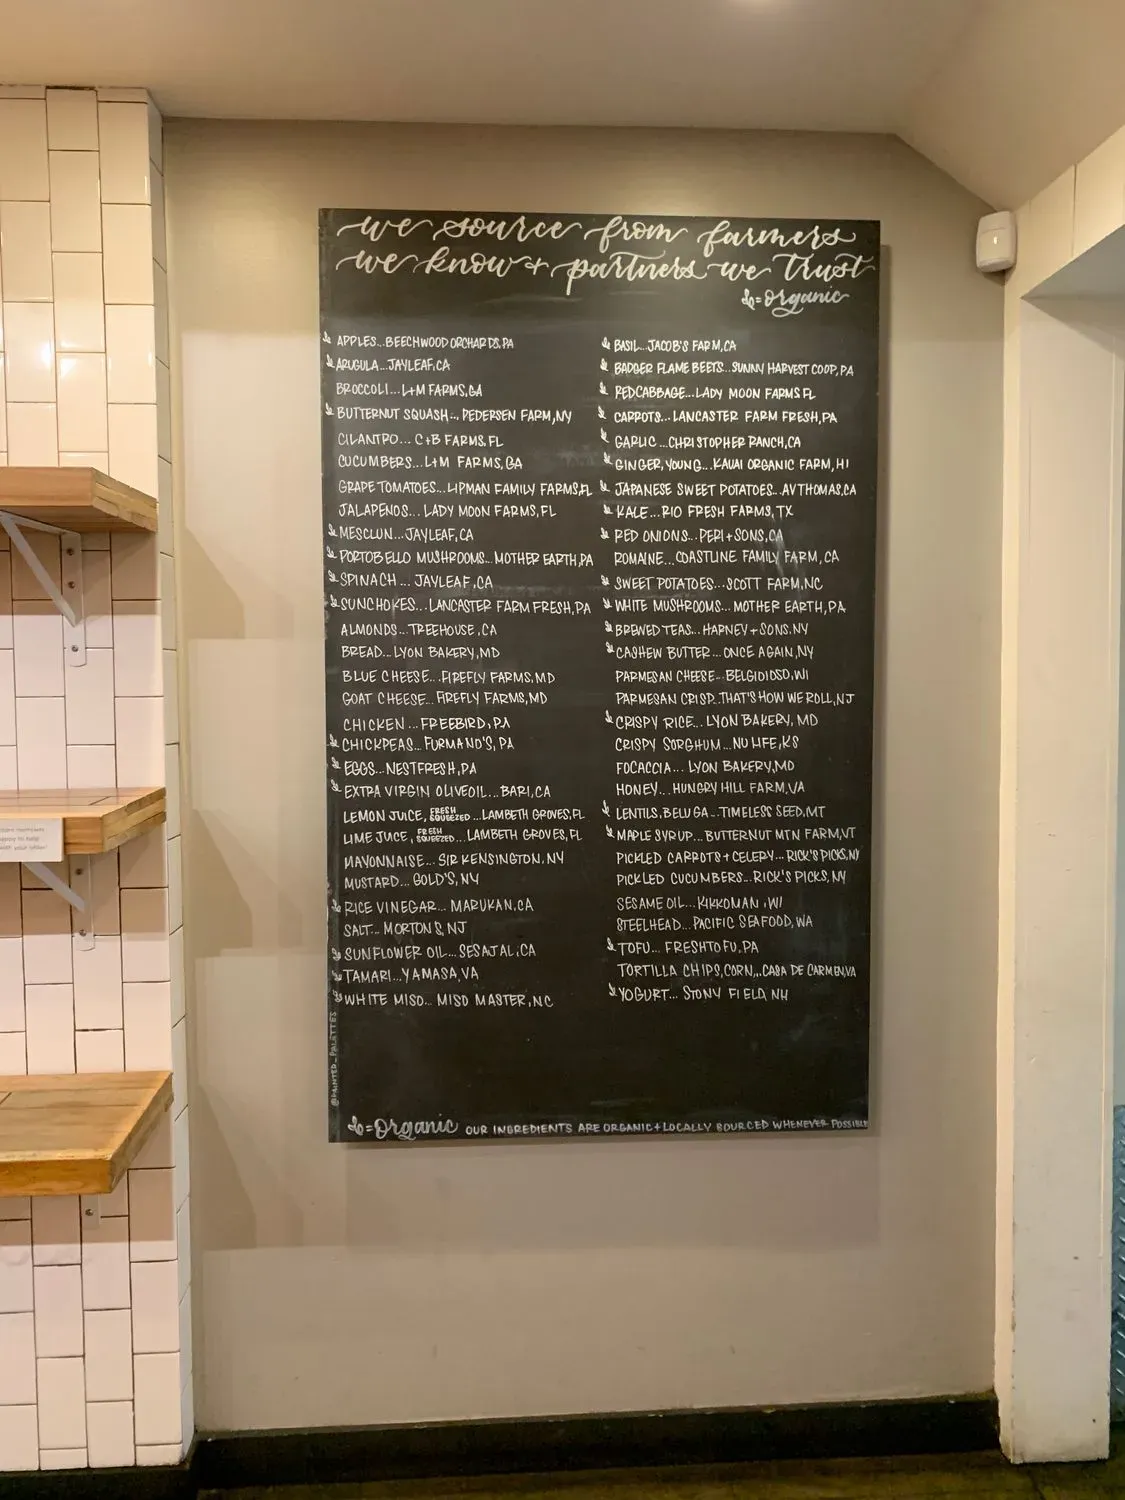 we source from farmers
we know + partners we trust
= organic
APPLES...BEECHWOOD ORCHARDS, PA
ARUGULA...JAYLEAF, CA
BROCCOLI...L+M FARMS, GA
BUTTERNUT SQUASH... PEDERSEN FARM, NY
CILANTRO... C+B FARMS, FL
CUCUMBERS...L+M FARMS, GA
GRAPE TOMATOES...LIPMAN FAMILY FARMS, FL
JALAPENOS... LADY MOON FARMS, FL
MESCLUN...JAYLEAF, CA
PORTOBELLO MUSHROOMS...MOTHER EARTH, PA
SPINACH... JAYLEAF, CA
SUNCHOKES...LANCASTER FARM FRESH, PA
ALMONDS...TREEHOUSE, CA
BREAD...LYON BAKERY, MD
BLUE CHEESE...FIREFLY FARMS, MD
GOAT CHEESE...FIREFLY FARMS, MD
CHICKEN...FREEBIRD, PA
CHICKPEAS...FURMANO'S, PA
EGGS...NESTFRESH, PA
EXTRA VIRGIN OLIVE OIL...BARI, CA
LEMON JUICE, FRESH SQUEEZED...LAMBETH GROVES, FL
LIME JUICE, FRESH SQUEEZED...LAMBETH GROVES, FL
MAYONNAISE...SIR KENSINGTON, NY
MUSTARD...GOLD'S, NY
RICE VINEGAR...MARUKAN, CA
SALT...MORTON'S, NJ
SUNFLOWER OIL...SESAJAL, CA
TAMARI...YAMASA, VA
WHITE MISO...MISO MASTER, NC
BASIL...JACOB'S FARM, CA
BADGER FLAME BEETS...SUNNY HARVEST COOP, PA
RED CABBAGE...LADY MOON FARMS FL
CARROTS...LANCASTER FARM FRESH, PA
GARLIC...CHRISTOPHER RANCH, CA
GINGER, YOUNG...KAUAI ORGANIC FARM, HI
JAPANESE SWEET POTATOES...AV THOMAS, CA
KALE...RIO FRESH FARMS, TX
RED ONIONS...PERI+SONS, CA
ROMAINE...COASTLINE FAMILY FARM, CA
SWEET POTATOES...SCOTT FARM, NC
WHITE MUSHROOMS...MOTHER EARTH, PA
BREWED TEAS...HARNEY+SONS, NY
CASHEW BUTTER...ONCE AGAIN, NY
PARMESAN CHEESE...BELGIOIOSO, WI
PARMESAN CRISP...THAT'S HOW WE ROLL, NJ
CRISPY RICE...LYON BAKERY, MD
CRISPY SORGHUM...NU LIFE, KS
FOCACCIA...LYON BAKERY, MD
HONEY...HUNGRY HILL FARM, VA
LENTILS, BELUGA...TIMELESS SEED, MT
MAPLE SYRUP...BUTTERNUT MTN FARM, VT
PICKLED CARROTS+CELERY...RICK'S PICKS, NY
PICKLED CUCUMBERS...RICK'S PICKS, NY
SESAME OIL...KIKKOMAN, WI
STEELHEAD...PACIFIC SEAFOOD, WA
TOFU...FRESHTOFU, PA
TORTILLA CHIPS, CORN...CASA DE CARMEN, VA
YOGURT...STONY FIELD, NH
@PAINTED_PALETTES
= organic OUR INGREDIENTS ARE ORGANIC + LOCALLY SOURCED WHENEVER POSSIBLE